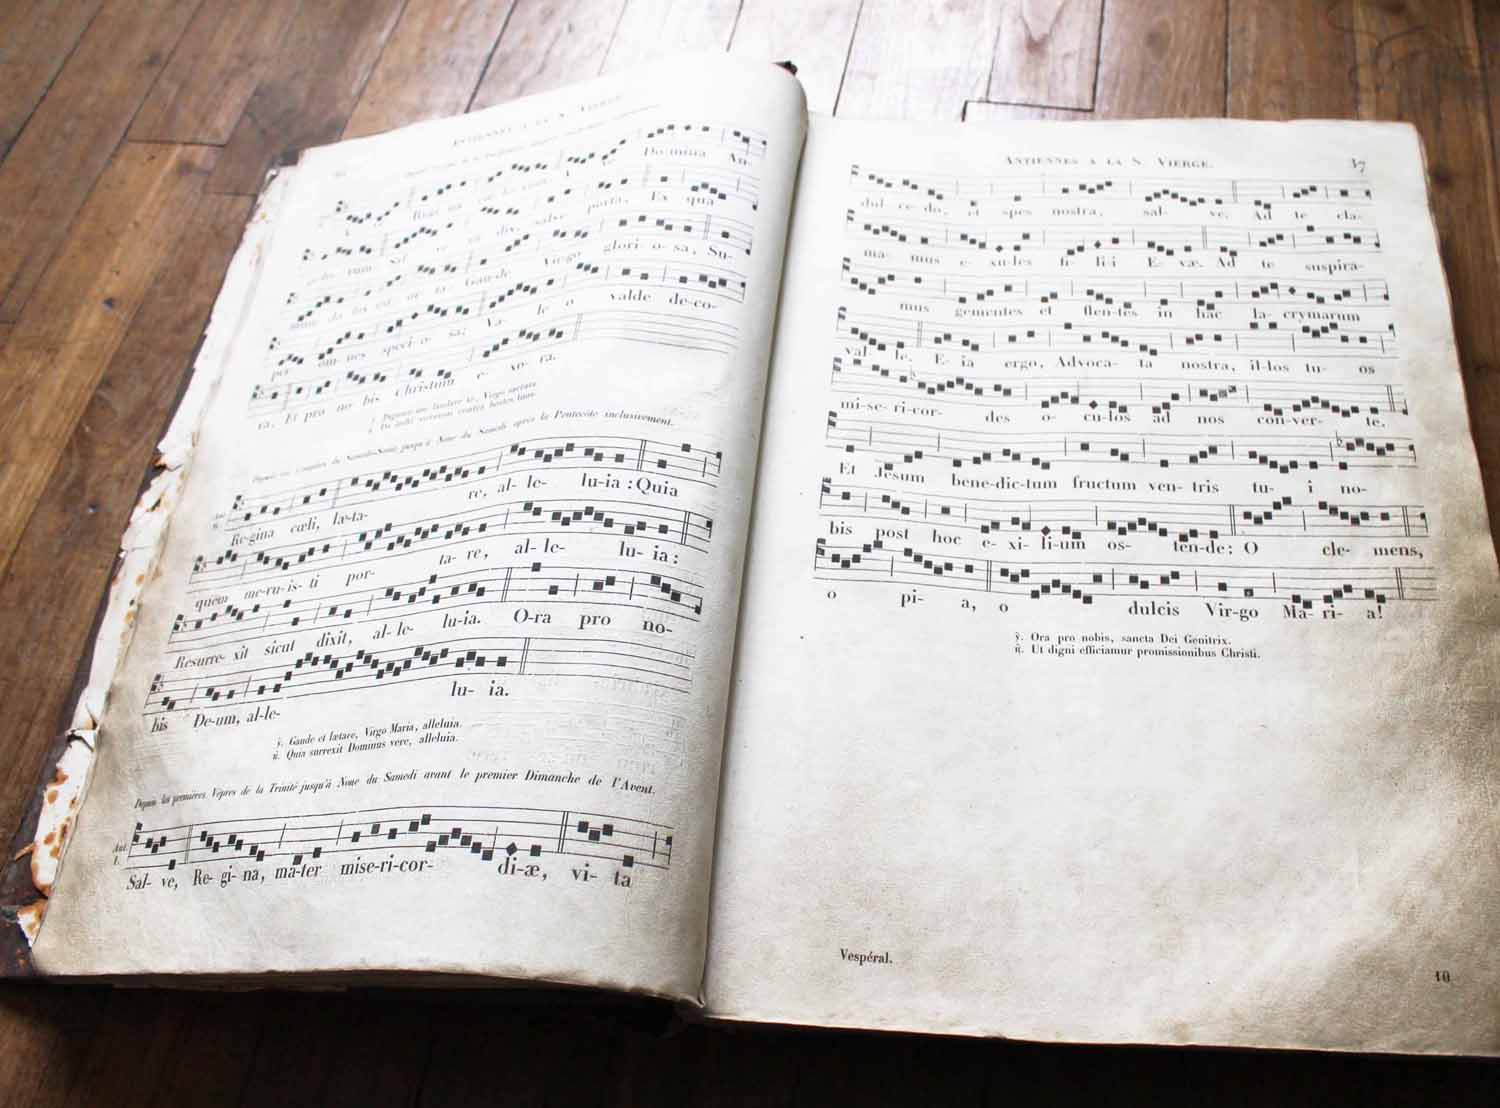 ANTIENNES A LA S. VIERGE.
A- ve Regi- na cœ- lo-rum, A- ve Do-mina An-
ge-lo- rum: Sal- ve ra- dix, salve porta, Ex qua
mun- do lux est or- ta: Gau-de Vir-go glori- o-sa, Su-
per om- nes speci- o- sa; Va- le o valde de-co-
ra, Et pro no- bis Christum e- xo- ra.
Dignare me laudare te, Virgo sacrata.
Da mihi virtutem contra hostes tuos.
jusqu'à None du Samedi après la Pentecôte inclusivement.
Ant.
6.
Re-gina cœli, læ-ta- re, al- le- lu-ia : Quia
quem me-ru-is- ti por- ta- re, al- le- lu- ia :
Resurre- xit sicut dixit, al- le- lu-ia. O-ra pro no-
bis De-um, al-le- lu- ia.
℣. Gaude et lætare, Virgo Maria, alleluia.
℟. Quia surrexit Dominus vere, alleluia.
Depuis les premières Vêpres de la Trinité jusqu'à None du Samedi avant le premier Dimanche de l'Avent.
Ant.
1.
Sal- ve, Re- gi- na, ma-ter mise-ri-cor- di-æ, vi- ta
ANTIENNES A LA S. VIERGE. 37
dul- ce- do, et spes nostra, sal- ve. Ad te cla-
ma- mus e- xu-les fi- li-i E- væ. Ad te suspira-
mus gementes et flen-tes in hac la- crymarum
val- le. E- ia ergo, Advoca- ta nostra, il-los tu- os
mi- se- ri-cor- des o- cu-los ad nos con-ver- te.
Et Jesum bene-dic-tum fructum ven- tris tu- i no-
bis post hoc e- xi- li-um os- ten-de: O cle- mens,
o pi- a, o dulcis Vir-go Ma- ri- a!
℣. Ora pro nobis, sancta Dei Genitrix.
℟. Ut digni efficiamur promissionibus Christi.
Vespéral. 10